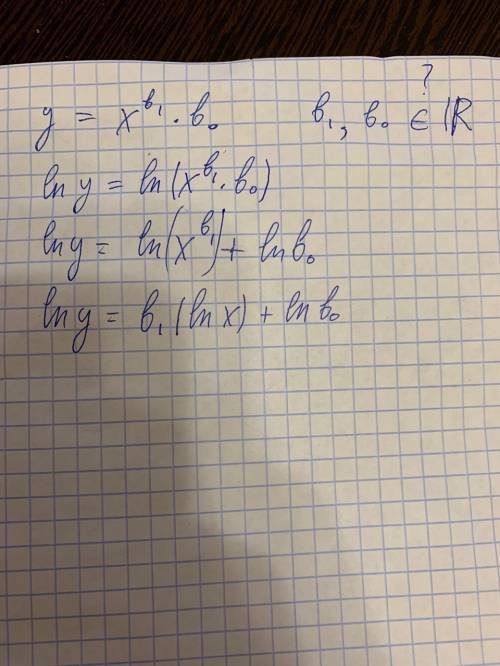 ?
y = x^b₁ · b₀ b₁, b₀ ∈ ℝ
ln y = ln(x^b₁ · b₀)
ln y = ln(x^b₁) + ln b₀
ln y = b₁ (ln x) + ln b₀